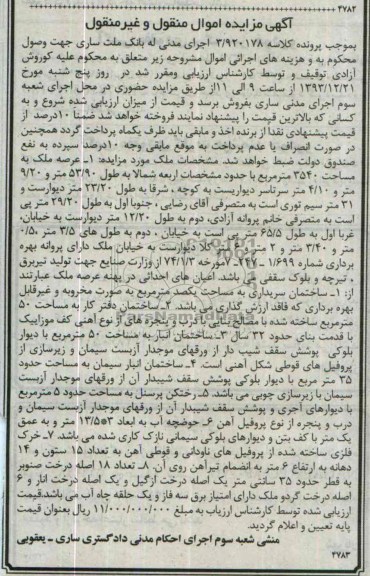 ۴۷۸۲
آگهی مزایده اموال منقول و غیرمنقول
بموجب پرونده کلاسه ۳/۹۲۰۱۷۸ اجرای مدنی له بانک ملت ساری جهت وصول
محکوم به و هزینه های اجرائی اموال مشروحه زیر متعلق به محکوم علیه کوروش
آزادی توقیف و توسط کارشناس ارزیابی ومقرر شد در روز پنج شنبه مورخ
۱۳۹۳/۱۲/۲۱ از ساعت ۹ الی ۱۱از طریق مزایده حضوری در محل اجرای شعبه
سوم اجرای مدنی ساری بفروش برسد و قیمت از میزان ارزیابی شده شروع و به
کسانی که بالاترین قیمت را پیشنهاد نمایند فروخته خواهد شد ضمناً ۱۰درصد از
قیمت پیشنهادی نقدا از برنده اخذ و مابقی باید ظرف یکماه پرداخت گردد همچنین
در صورت انصراف یا عدم پرداخت به موقع مابقی وجه ۱۰درصد سپرده به نفع
صندوق دولت ضبط خواهد شد. مشخصات ملک مورد مزایده: ۱ـ عرصه ملک به
مساحت ۳۵۴۰ مترمربع با حدود مشخصات اربعه شمالا به طول ۵۳/۹۰ متر و ۹/۲۰
متر و ۴/۱۰ متر سرتاسر دیواریست به کوچه ، شرقا به طول ۲۳/۲۰ متر دیوارست و
۳۱ متر سیم توری است به متصرفی آقای رضایی ، جنوبا اول به طول ۲۹/۲۰ متر پی
است به متصرفی خانم پروانه آزادی، دوم به طول ۱۲/۲۰ متر دیوارست به خیابان،
غربا اول به طول ۶۵/۵ متر پی است به خیابان ، دوم به طول های ۳/۵ متر ۰/۵۰
متر و ۳/۴۰ متر و ۲ متر و ۶ متر کلا دیوارست به خیابان ملک دارای پروانه بهره
برداری شماره ۱/۶۹۹ـ ۷۲۴۷مورخه ۷۴/۱/۳ از وزارت صنایع جهت تولید تیربرق
، تیرچه و بلوک سقفی می باشد. اعیان های احداثی در پهنه عرصه ملک عبارتند
از: ۱ـ ساختمان سریداری به مساحت یکصد مترمربع به صورت مخروبه و غیرقابل
بهره برداری که فاقد ارزش گذاری می باشد. ۲ـ ساختمان دفتر کار به مساحت ۵۰
مترمربع ساخته شده با مصالح بنایی با درب و پنجره های از نوع آهنی کف موزاییک
با قدمت بنای حدود ۳۲ سال ۳ـ ساختمان انبار به مساحت ۵۰ مترمربع با دیوار
بلوکی پوشش سقف شیب دار از ورقهای موجدار آزبست سیمان و زیرسازی از
پروفیل های قوطی شکل آهنی است. ۴ـ ساختمان انبار سیمان به مساحت حدود
۳۵ متر مربع با دیوار بلوکی پوشش سقف شیبدار آن از ورقهای موجدار آزبست
سیمان با زیرسازی چوبی می باشد. ۵ـ رختکن پرسنل به مساحت حدود ۵ مترمربع
با دیوارهای آجری و پوشش سقف شیبدار آن از ورقهای موجدار آزبست سیمان و
درب و پنجره از نوع پروفیل آهن ۶ـ حوضچه آب به ابعاد ۳×۱۳/۵ متر و به عمق
یک متر با کف بتن و دیوارهای بلوکی سیمانی نازک کاری شده می باشد. ۷ـ خرک
فلزی ساخته شده از پروفیل های ناودانی و قوطی آهن به تعداد ۱۵ ستون و ۱۴
دهانه به ارتفاع ۶ متر به انضمام تیرآهن روی آن. ۸ـ تعداد ۱۸ اصله درخت صنوبر
به قطر حدود ۳۵ سانتی متر یک اصله درخت ازگیل و یک اصله درخت انار و ۶
اصله درخت گردو ملک دارای امتیاز برق سه فاز و یک حلقه چاه آب می باشد.قیمت
ارزیابی شده توسط کارشناس ارزیاب به مبلغ ۱۱/۰۰۰/۰۰۰/۰۰۰ ریال بعنوان قیمت
پایه تعیین و اعلام گردید.
منشی شعبه سوم اجرای احکام مدنی دادگستری ساری ـ یعقوبی
۴۷۸۳